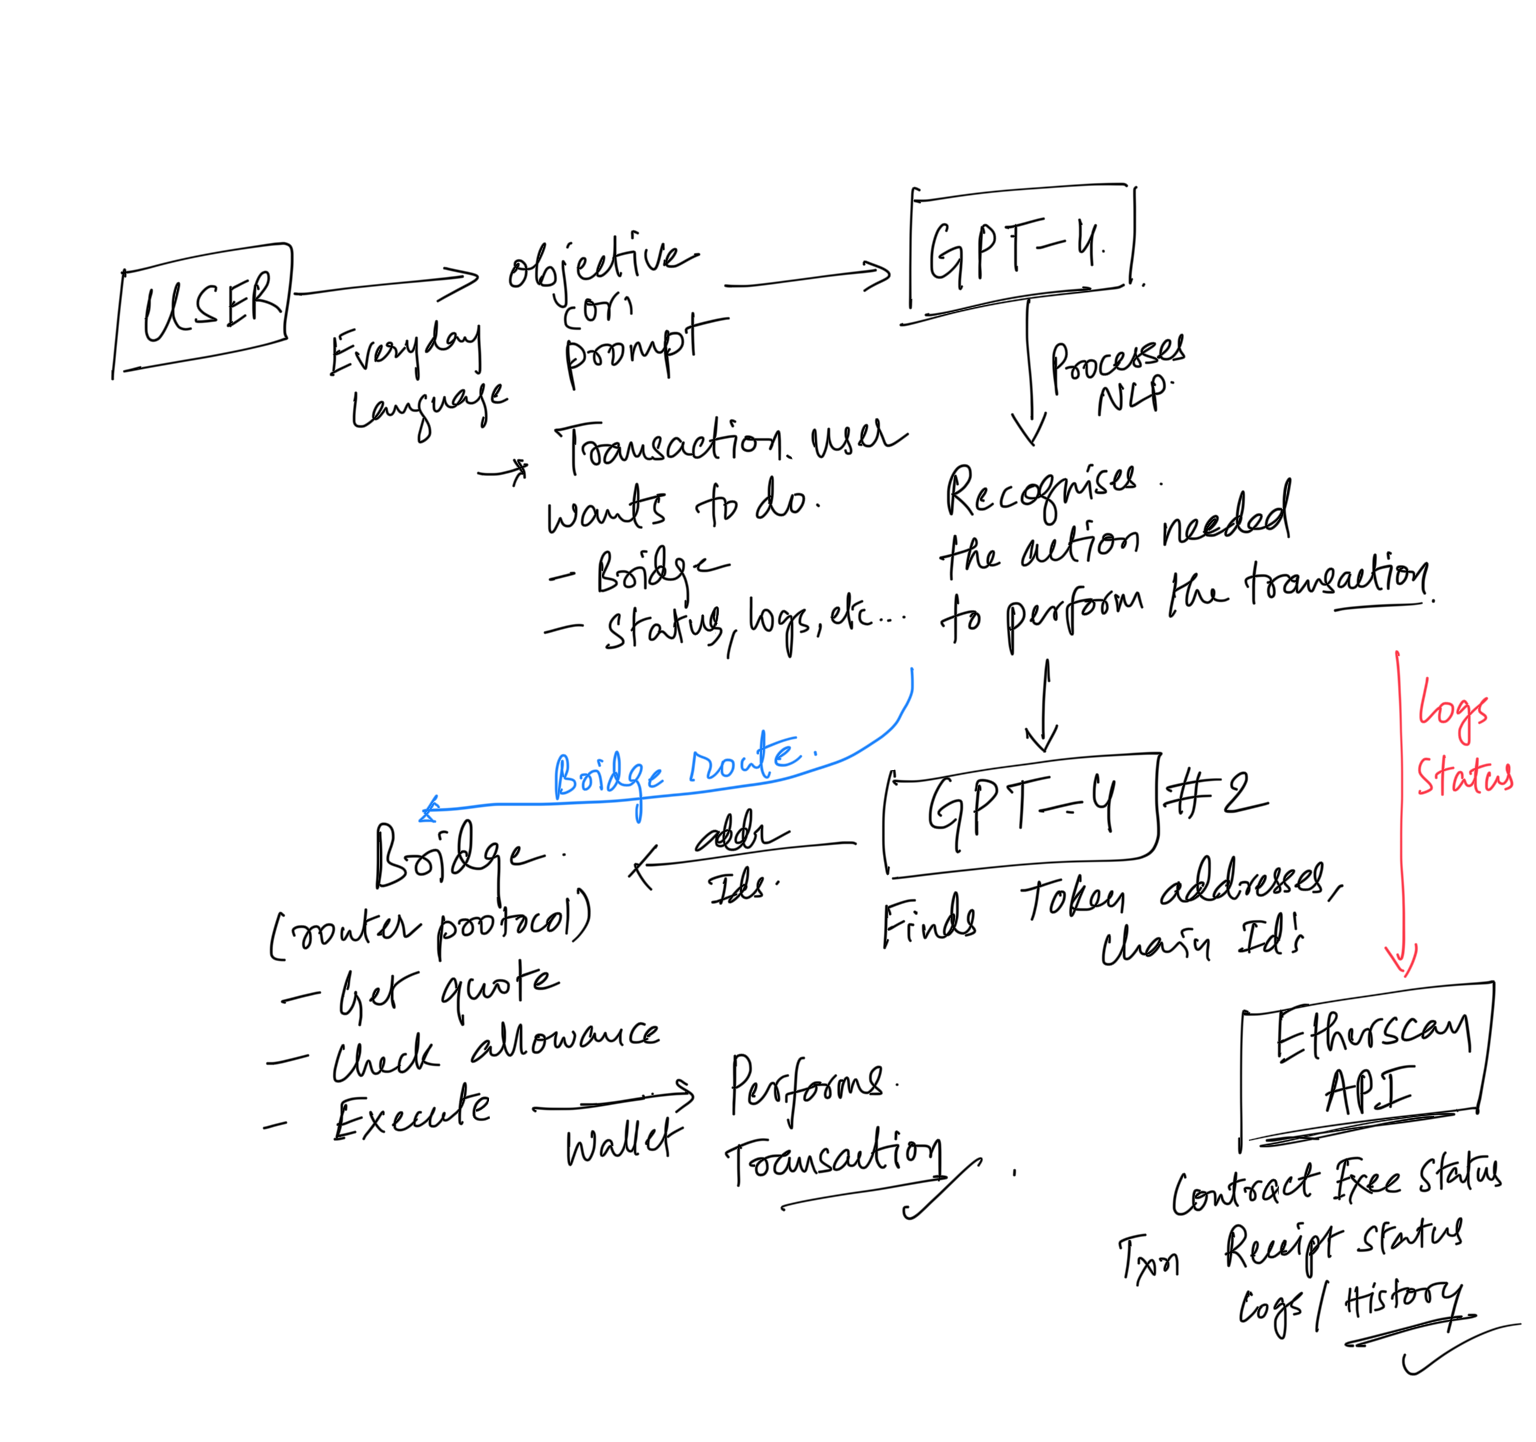 USER
Everyday
Language
Objective
(or)
prompt
→ Transaction user
wants to do.
- Bridge
- Status, logs, etc...
GPT-4.
Processes
NLP.
Recognises.
the action needed
to perform the transaction.
Bridge route.
Logs
Status
GPT-4 #2
Finds Token addresses,
Chain Id's
addr
Ids.
Bridge.
(router protocol)
- Get quote
- Check allowance
- Execute
Wallet
Performs.
Transaction
Etherscan
API
Contract Exec Status
Txn Receipt Status
Logs / History